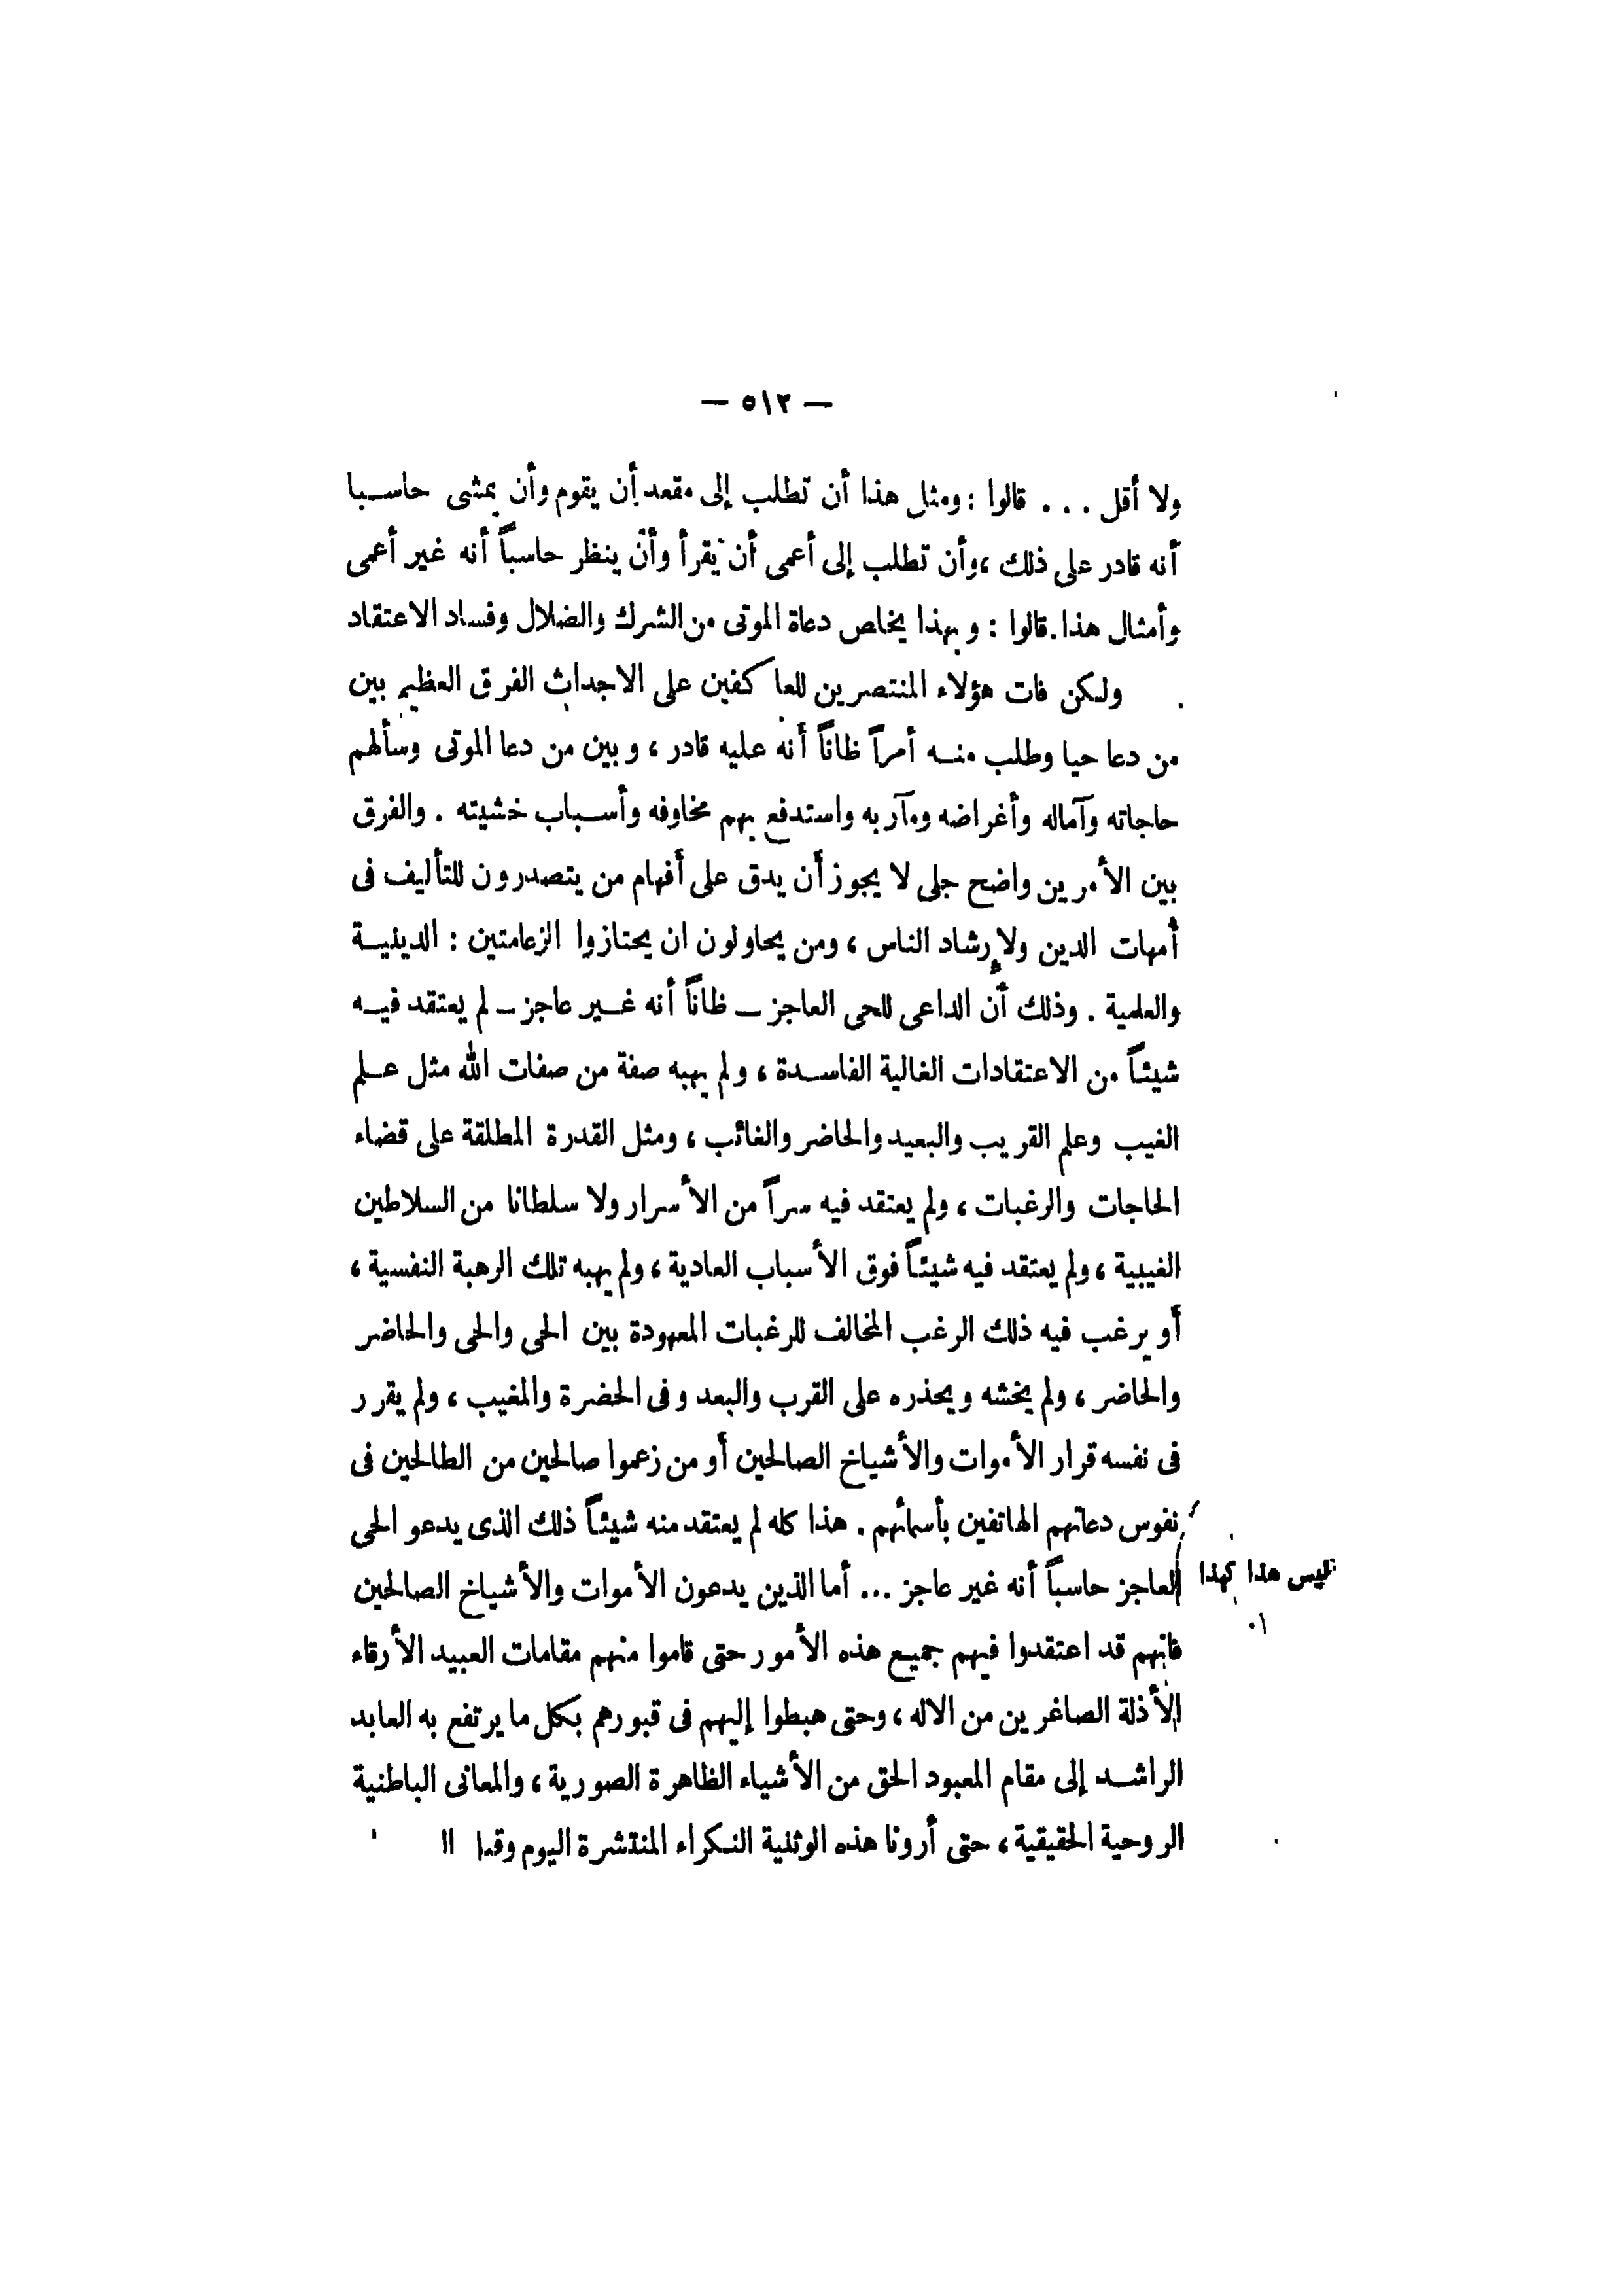 — ٥١٢ —
ولا أقل . . . قالوا : ومثل هذا أن تطلب إلى مقعد أن يقوم وأن يمشى حاسبا
أنه قادر على ذلك ، وأن تطلب إلى أعمى أن يقرأ وأن ينظر حاسباً أنه غير أعمى
وأمثال هذا . قالوا : وبهذا يخلص دعاة الموتى من الشرك والضلال وفساد الاعتقاد
ولكن فات هؤلاء المنتصرين للعاكفين على الاجداث الفرق العظيم بين
من دعا حيا وطلب منه أمراً ظاناً أنه عليه قادر ، وبين من دعا الموتى وسألهم
حاجاته وآماله وأغراضه ومآربه واستدفع بهم مخاوفه وأسباب خشيته . والفرق
بين الأمرين واضح جلى لا يجوز أن يدق على أفهام من يتصدرون للتأليف فى
أمهات الدين ولإرشاد الناس ، ومن يحاولون ان يحتازوا الزعامتين : الدينية
والعلمية . وذلك أن الداعى للحى العاجز — ظاناً أنه غير عاجز — لم يعتقد فيه
شيئاً من الاعتقادات الغالية الفاسدة ، ولم يهبه صفة من صفات الله مثل علم
الغيب وعلم القريب والبعيد والحاضر والغائب ، ومثل القدرة المطلقة على قضاء
الحاجات والرغبات ، ولم يعتقد فيه سراً من الأسرار ولا سلطانا من السلاطين
الغيبية ، ولم يعتقد فيه شيئاً فوق الأسباب العادية ، ولم يهبه تلك الرهبة النفسية ،
أو يرغب فيه ذلك الرغب المخالف للرغبات المعهودة بين الحى والحى والحاضر
والحاضر ، ولم يخشه ويحذره على القرب والبعد وفى الحضرة والمغيب ، ولم يقرر
فى نفسه قرار الأموات والأشياخ الصالحين أو من زعموا صالحين من الطالحين فى
نفوس دعاتهم الهاتفين بأسمائهم . هذا كله لم يعتقد منه شيئاً ذلك الذى يدعو الحى
ليس هذا كهذا
العاجز حاسباً أنه غير عاجز ... أما الذين يدعون الأموات والأشياخ الصالحين
فانهم قد اعتقدوا فيهم جميع هذه الأمور حتى قاموا منهم مقامات العبيد الأرقاء
الأذلة الصاغرين من الاله ، وحتى هبطوا إليهم فى قبورهم بكل ما يرتفع به العابد
الراشد إلى مقام المعبود الحق من الأشياء الظاهرة الصورية ، والمعانى الباطنية
الروحية الحقيقية ، حتى أرونا هذه الوثنية النكراء المنتشرة اليوم